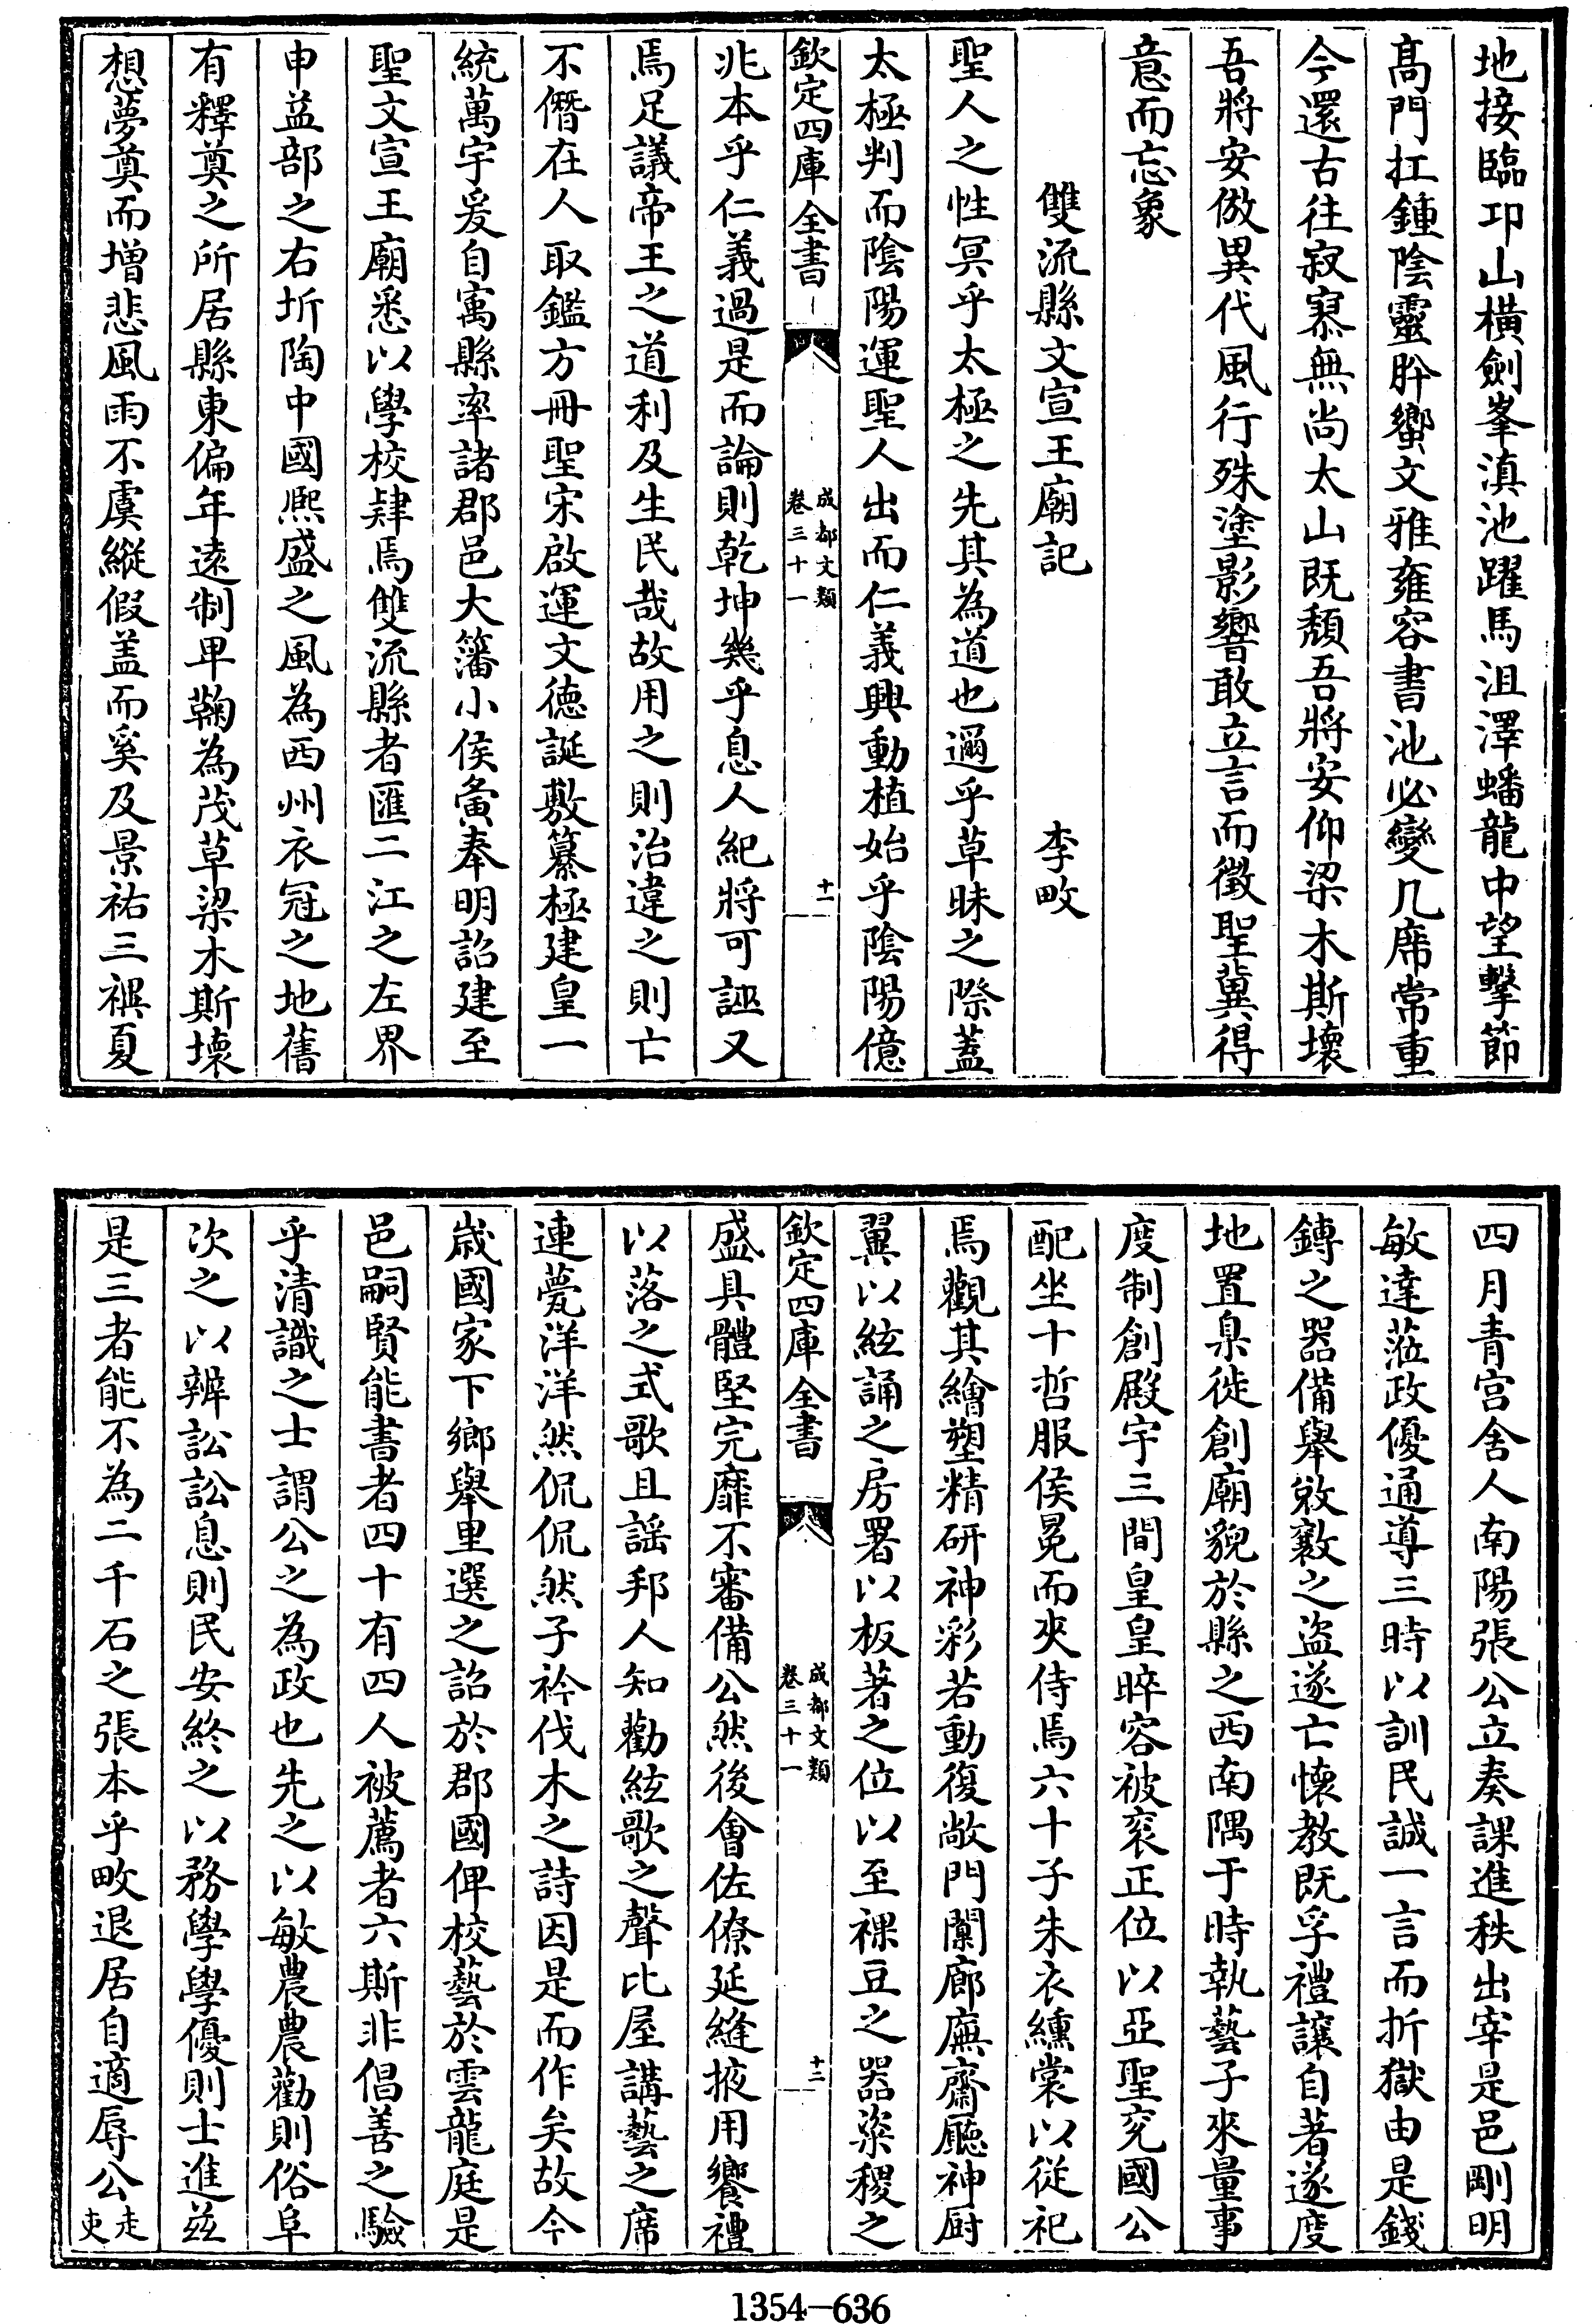 地接臨卭山橫劍峯滇池躍馬沮澤蟠龍中望擊節
髙門扛鍾陰靈肸蠁文雅雍容書池必變几席常重
今還古往寂寞無尚太山既頽吾將安仰梁木斯壞
吾將安倣異代風行殊塗影響敢立言而徵聖冀得
意而忘象
雙流縣文宣王廟記 李畋
聖人之性冥乎太極之先其為道也邇乎草昧之際蓋
太極判而陰陽運聖人出而仁義興動植始乎陰陽億
欽定四庫全書 成都文類 卷三十一 十一
兆本乎仁義過是而論則乾坤幾乎息人紀將可誣又
焉足議帝王之道利及生民哉故用之則治違之則亡
不僭在人取鑑方冊聖宋啟運文德誕敷纂極建皇一
統萬宇爰自寓縣率諸郡邑大籓小侯夤奉明詔建至
聖文宣王廟悉以學校肄焉雙流縣者匯二江之左界
申益部之右圻陶中國熈盛之風為西州衣冠之地舊
有釋奠之所居縣東偏年逺制卑鞠為茂草梁木斯壞
想夢奠而增悲風雨不虞縱假盖而奚及景祐三禩夏
四月青宫舍人南陽張公立奏課進秩出宰是邑剛明
敏達蒞政優通導三時以訓民誠一言而折獄由是錢
鎛之器備舉敓敚之盜遂亡懷教既孚禮讓自著遂度
地置臬徙創廟貌於縣之西南隅于時執藝子來量事
度制創殿宇三間皇皇睟容被衮正位以亞聖兖國公
配坐十哲服侯冕而夾侍焉六十子朱衣纁裳以從祀
焉觀其繪塑精研神彩若動復敞門闑廊廡齋廳神厨
翼以絃誦之房署以板著之位以至祼豆之器粢稷之
欽定四庫全書 成都文類 卷三十一 十二
盛具體堅完靡不審備公然後會佐僚延縫掖用饗禮
以落之式歌且謡邦人知勸絃歌之聲比屋講藝之席
連甍洋洋然侃侃然子衿伐木之詩因是而作矣故今
歳國家下鄉舉里選之詔於郡國俾校藝於雲龍庭是
邑嗣賢能書者四十有四人被薦者六斯非倡善之驗
乎清識之士謂公之為政也先之以敏農農勸則俗阜
次之以辨訟訟息則民安終之以務學學優則士進兹
是三者能不為二千石之張本乎畋退居自適辱公走吏
1354—636